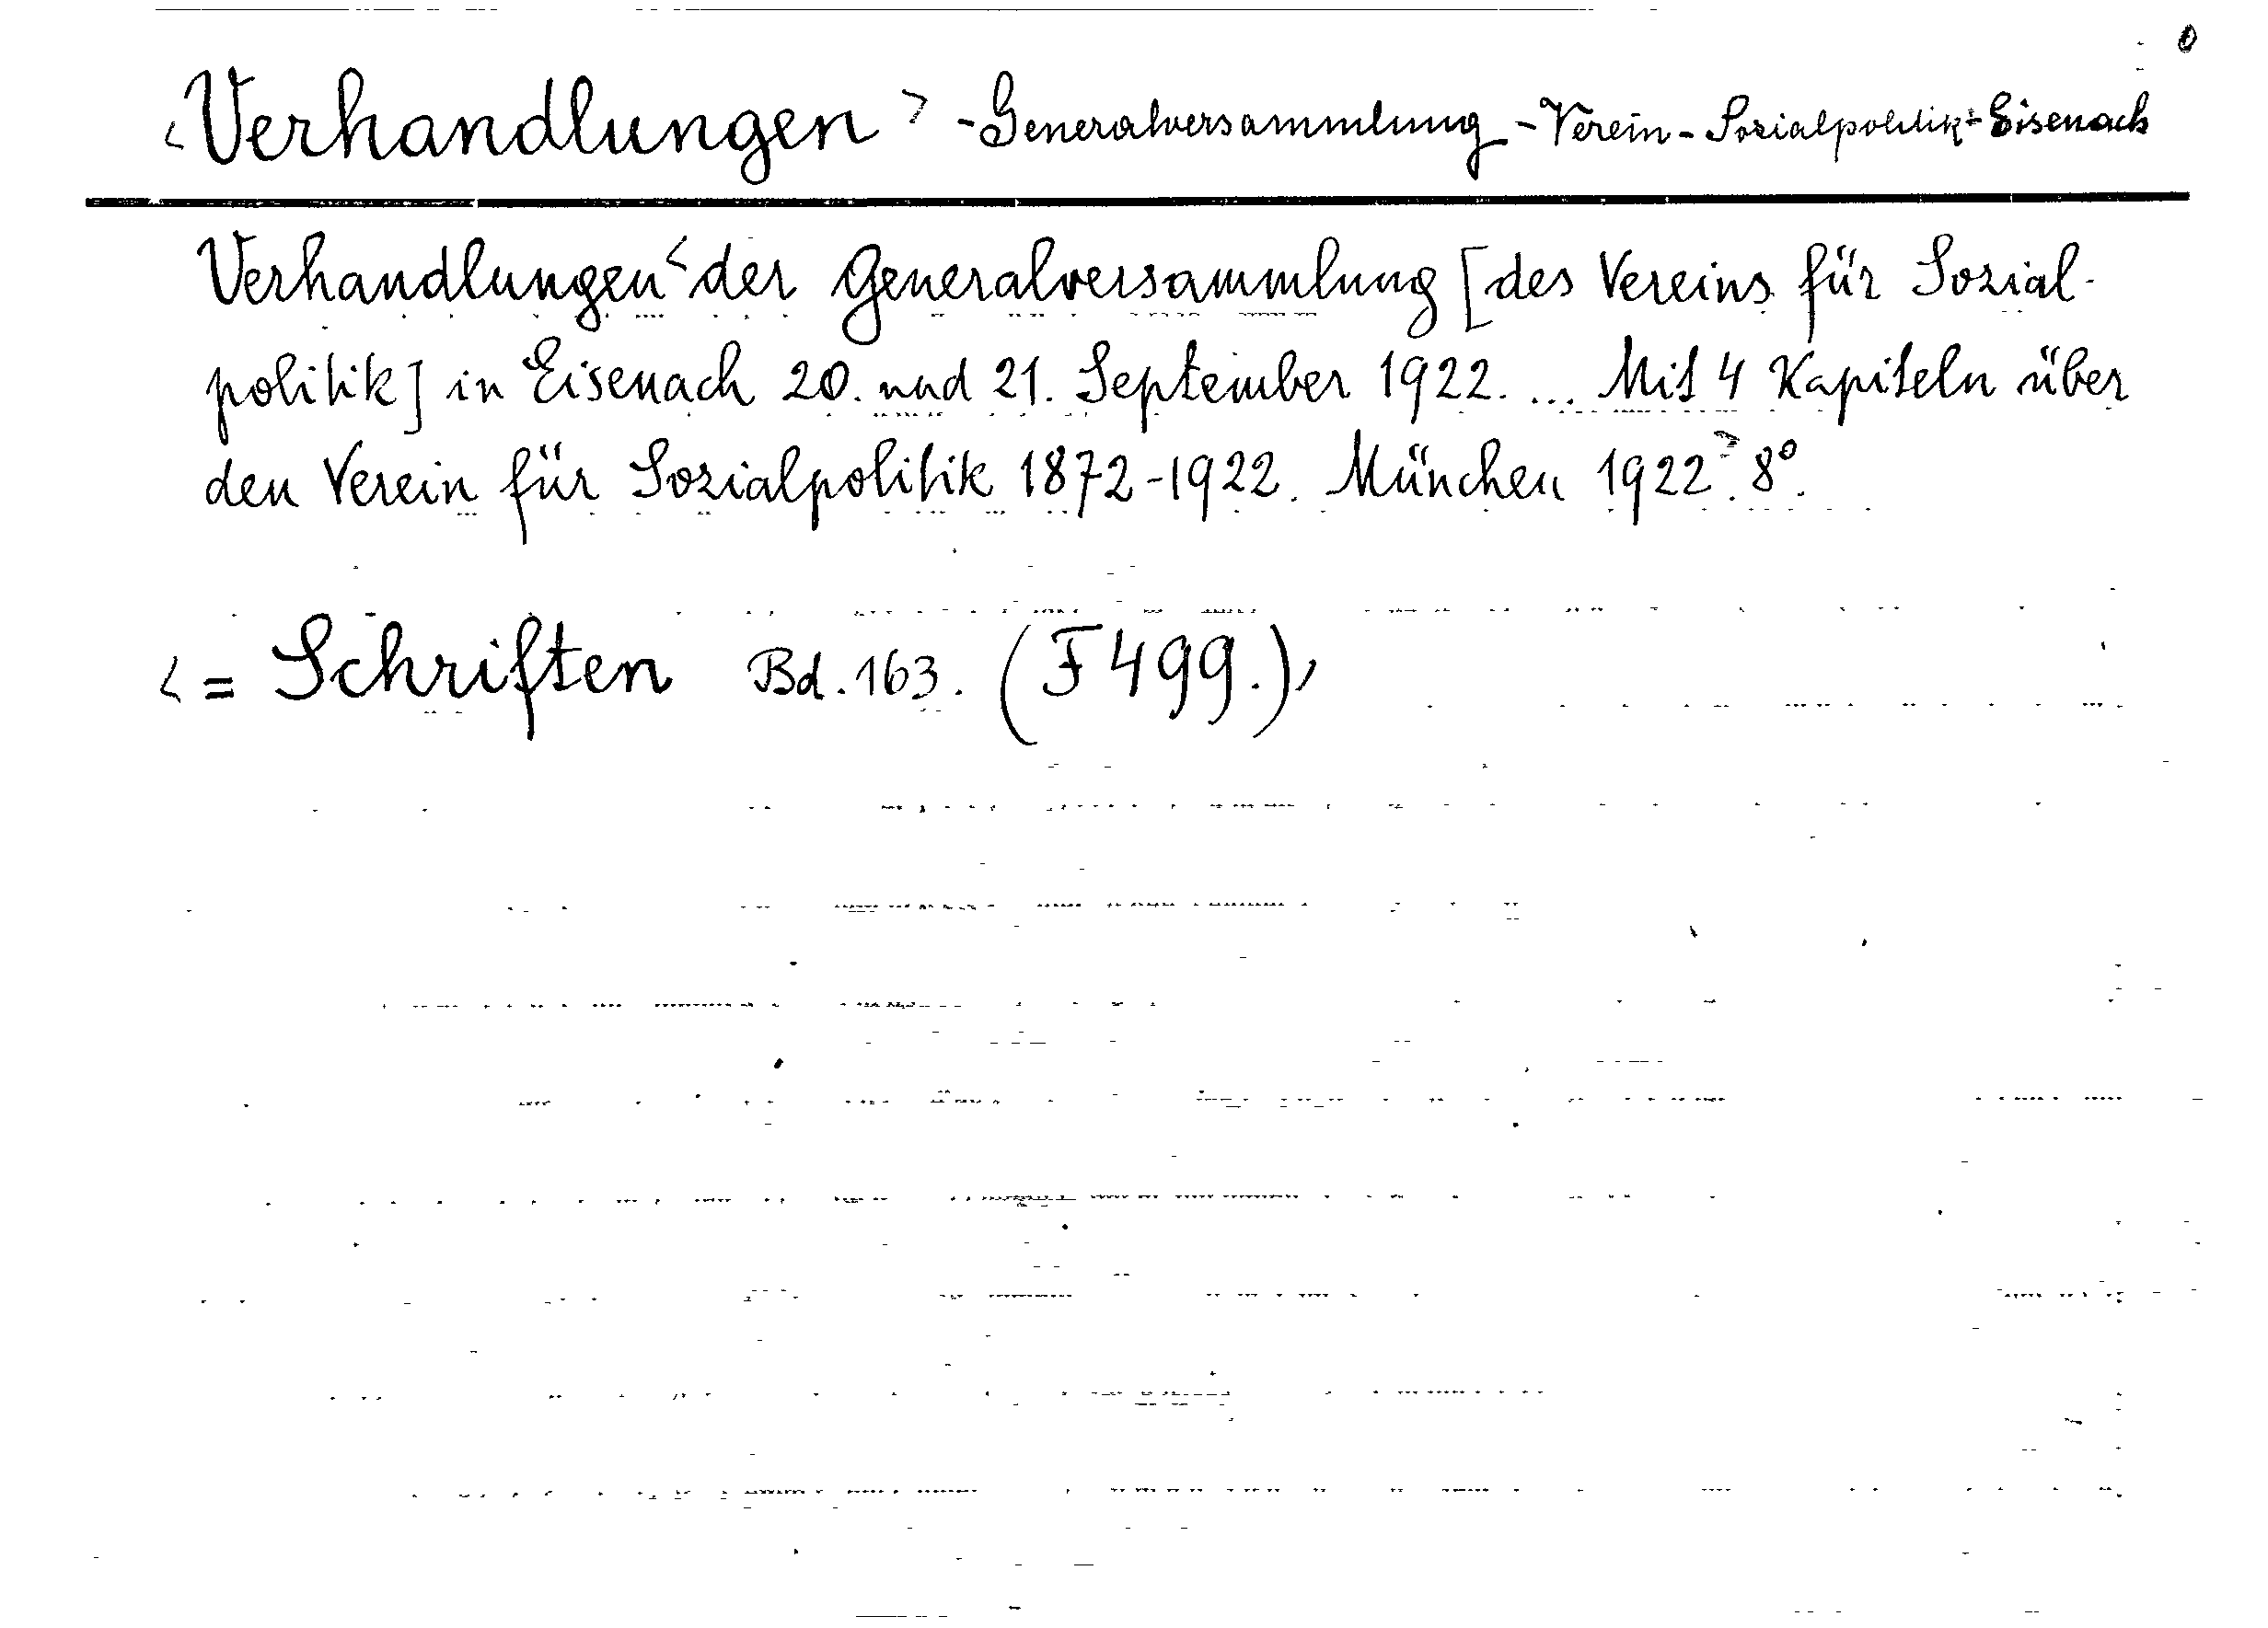 <Verhandlungen> -Generalversammlung-Verein-Sozialpolitik-Eisenach
Verhandlungen< der Generalversammlung [des Vereins für Sozial-
politik] in Eisenach 20. und 21. September 1922. ... Mit 4 Kapiteln über
den Verein für Sozialpolitik 1872-1922. München 1922>. 8°.
<= Schriften Bd. 163. (F 499.)>